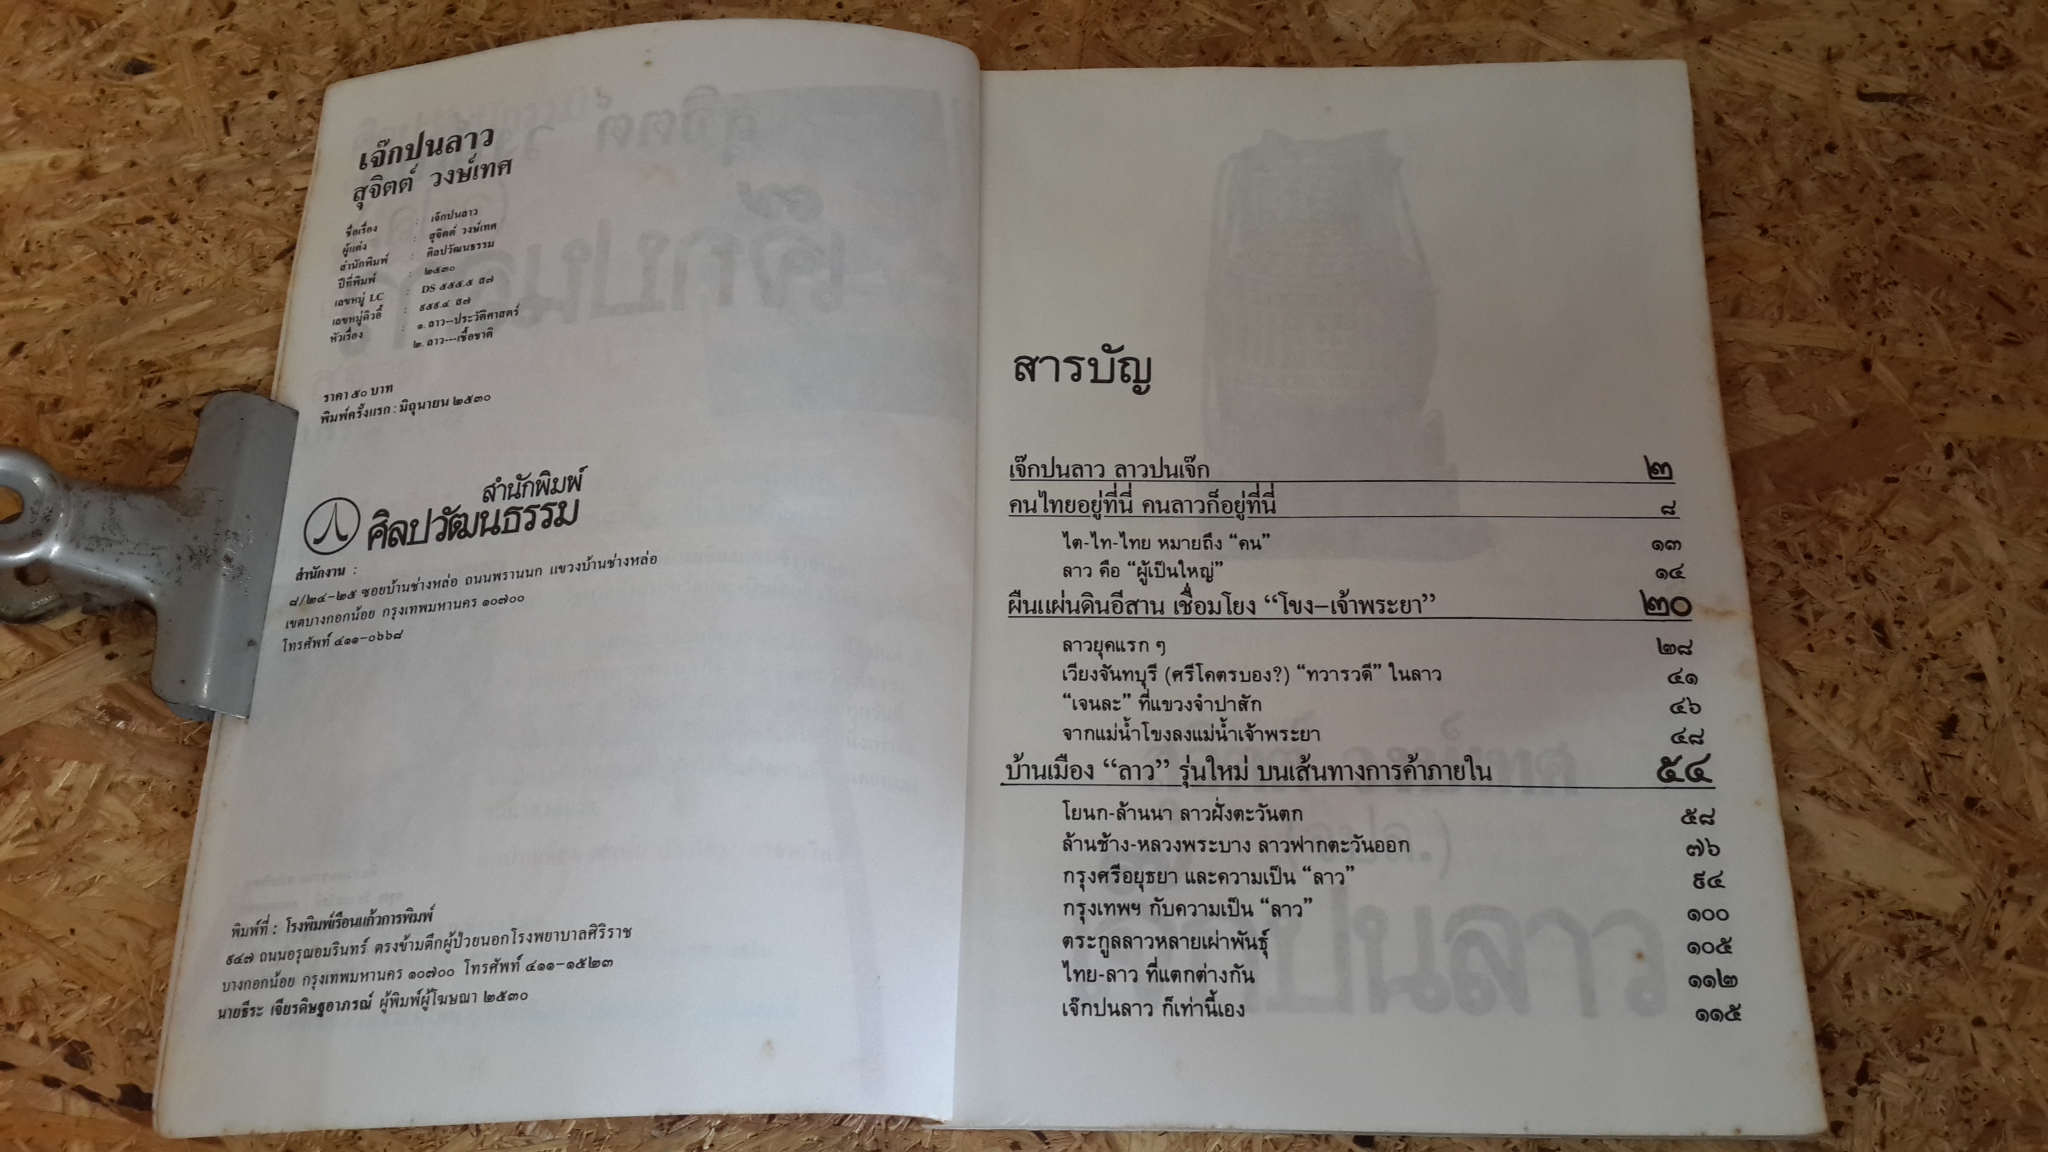 เจ๊กปนลาว
สุจิตต์ วงษ์เทศ
ชื่อเรื่อง : เจ๊กปนลาว
ผู้แต่ง : สุจิตต์ วงษ์เทศ
สำนักพิมพ์ : ศิลปวัฒนธรรม
ปีที่พิมพ์ : ๒๕๓๐
เลขหมู่ LC : DS ๕๕๕.๕ ส๗
เลขหมู่ดิวอี้ : ๙๕๙.๔ ส๗
หัวเรื่อง : ๑. ลาว--ประวัติศาสตร์
๒. ลาว---เชื้อชาติ
ราคา ๕๐ บาท
พิมพ์ครั้งแรก : มิถุนายน ๒๕๓๐
สำนักพิมพ์
ศิลปวัฒนธรรม
สำนักงาน :
๘/๒๔-๒๕ ซอยบ้านช่างหล่อ ถนนพรานนก แขวงบ้านช่างหล่อ
เขตบางกอกน้อย กรุงเทพมหานคร ๑๐๗๐๐
โทรศัพท์ ๔๑๑-๐๖๖๘
พิมพ์ที่ : โรงพิมพ์เรือนแก้วการพิมพ์
๙๔๗ ถนนอรุณอมรินทร์ ตรงข้ามตึกผู้ป่วยนอกโรงพยาบาลศิริราช
บางกอกน้อย กรุงเทพมหานคร ๑๐๗๐๐ โทรศัพท์ ๔๑๑-๑๕๒๓
นายธีระ เจียรดิษฐอาภรณ์ ผู้พิมพ์ผู้โฆษณา ๒๕๓๐
สารบัญ
เจ๊กปนลาว ลาวปนเจ๊ก ๒
คนไทยอยู่ที่นี่ คนลาวก็อยู่ที่นี่ ๘
ไต-ไท-ไทย หมายถึง “คน” ๑๓
ลาว คือ “ผู้เป็นใหญ่” ๑๔
ผืนแผ่นดินอีสาน เชื่อมโยง “โขง-เจ้าพระยา” ๒๐
ลาวยุคแรก ๆ ๒๘
เวียงจันทบุรี (ศรีโคตรบอง?) “ทวารวดี” ในลาว ๔๑
“เจนละ” ที่แขวงจำปาสัก ๔๖
จากแม่น้ำโขงลงแม่น้ำเจ้าพระยา ๔๘
บ้านเมือง “ลาว” รุ่นใหม่ บนเส้นทางการค้าภายใน ๕๔
โยนก-ล้านนา ลาวฝั่งตะวันตก ๕๘
ล้านช้าง-หลวงพระบาง ลาวฟากตะวันออก ๗๖
กรุงศรีอยุธยา และความเป็น “ลาว” ๙๔
กรุงเทพฯ กับความเป็น “ลาว” ๑๐๐
ตระกูลลาวหลายเผ่าพันธุ์ ๑๐๕
ไทย-ลาว ที่แตกต่างกัน ๑๑๒
เจ๊กปนลาว ก็เท่านี้เอง ๑๑๕